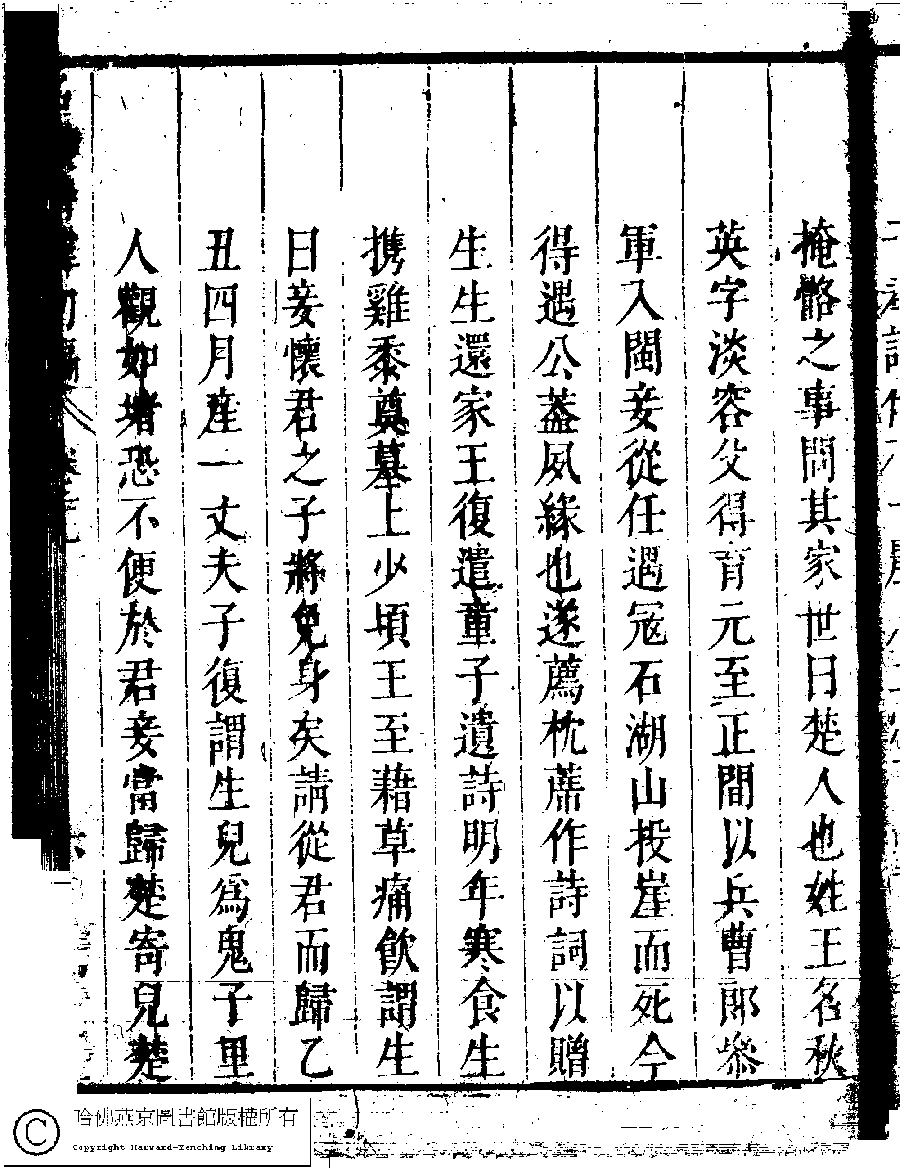 掩骼之事問其家世曰楚人也姓王名秋
英字淡容父得育元至正間以兵曹郎參
軍入閩妾從任遇冦石湖山投崖而死今
得遇公葢夙緣也遂薦枕蓆作詩詞以贈
生生還家王復遣童子遺詩明年寒食生
携雞黍奠墓上少頃王至藉草痛飲謂生
曰妾懷君之子將免身矣請從君而歸乙
丑四月産一丈夫子復謂生兒爲鬼子里
人觀如堵恐不便於君妾當歸楚寄兒楚
哈佛燕京圖書館版權所有
Copyright Harvard-Yenching Library